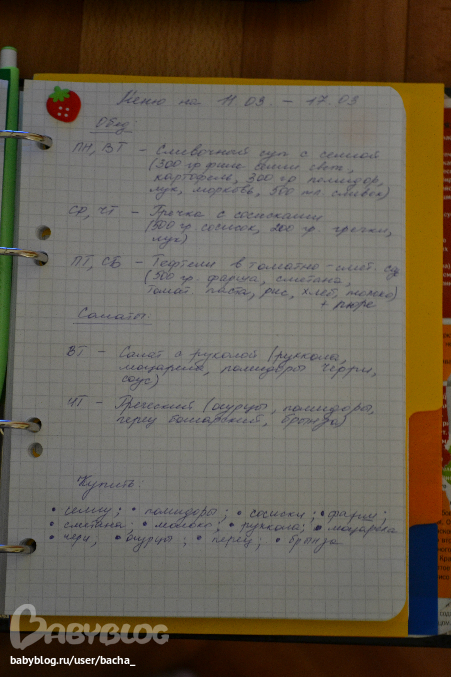 Меню на 11.03 – 17.03
Обед:
ПН, ВТ – Сливочный суп с семгой
(300 гр филе семги свеж.,
картофель, 300 гр помидор,
лук, морковь, 500 мл. сливок)
СР, ЧТ – Гречка с сосисками
(500 гр. сосисок, 200 гр. гречки,
лук)
ПТ, СБ – Тефтели в томатно-смет. соусе
(500 гр. фарша, сметана,
томат. паста, рис, хлеб, молоко)
+ пюре
Салаты:
ВТ – Салат с руколой (руккола,
моцарелла, помидоры черри,
соус)
ЧТ – Греческий (огурцы, помидоры,
перец болгарский, брынза)
Купить:
• семгу; • помидоры; • сосиски; • фарш;
• сметана; • молоко; • руккола; • моцарелла
• чери; • огурцы; • перец; • брынза
BABYBLOG
babyblog.ru/user/bacha_